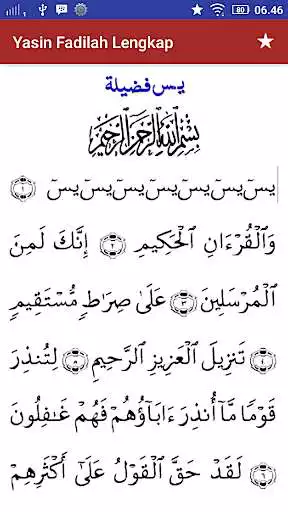 06.46
Yasin Fadilah Lengkap
يس فضيلة
بِسْمِ ٱللَّهِ ٱلرَّحْمَٰنِ ٱلرَّحِيمِ
يسٓ يسٓ يسٓ يسٓ يسٓ يسٓ يسٓ ١
وَٱلْقُرْءَانِ ٱلْحَكِيمِ ٢ إِنَّكَ لَمِنَ
ٱلْمُرْسَلِينَ ٣ عَلَىٰ صِرَٰطٍ مُّسْتَقِيمٍ
٤ تَنزِيلَ ٱلْعَزِيزِ ٱلرَّحِيمِ ٥ لِتُنذِرَ
قَوْمًا مَّآ أُنذِرَ ءَابَآؤُهُمْ فَهُمْ غَٰفِلُونَ
٦ لَقَدْ حَقَّ ٱلْقَوْلُ عَلَىٰٓ أَكْثَرِهِمْ